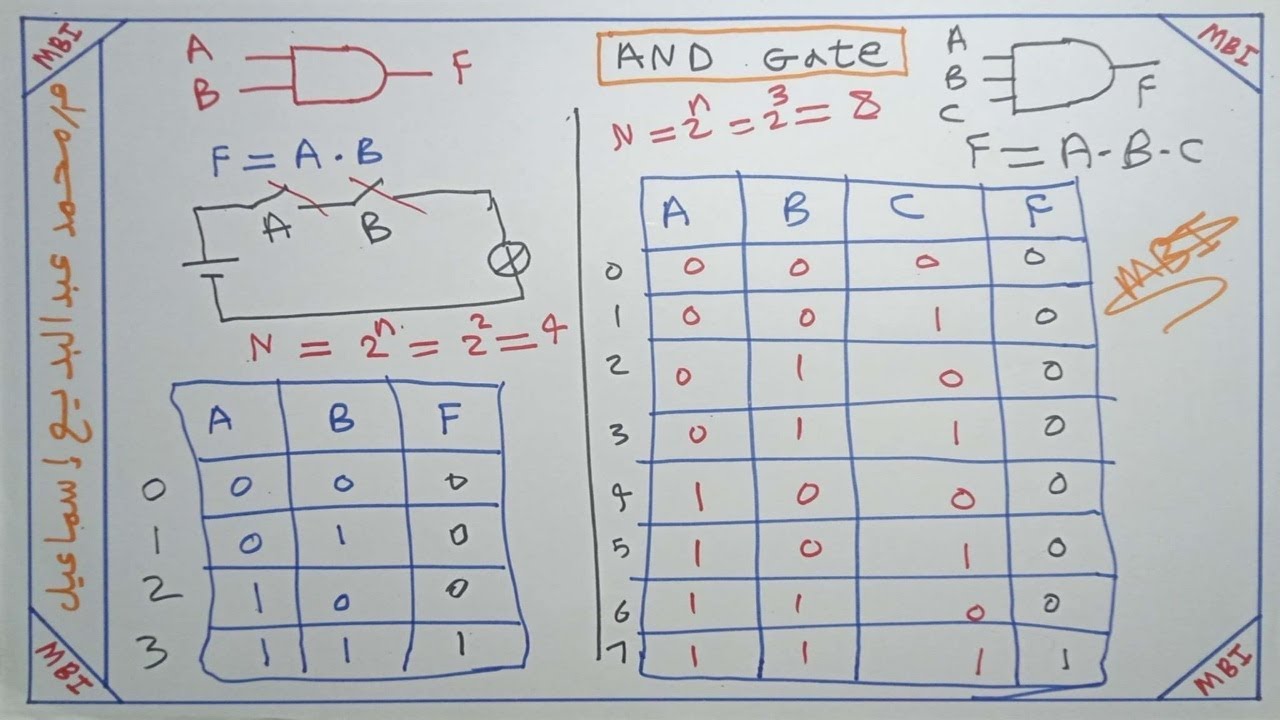 MBI
MBI
م/محمد عبدالبديع إسماعيل
AND Gate
A
B
F
F = A . B
A B
N = 2^n = 2^2 = 4
A B F
0 0 0 0
1 0 1 0
2 1 0 0
3 1 1 1
A
B
C
F
N = 2^n = 2^3 = 8
F = A - B - C
A B C F
0 0 0 0 0
1 0 0 1 0
2 0 1 0 0
3 0 1 1 0
4 1 0 0 0
5 1 0 1 0
6 1 1 0 0
7 1 1 1 1
MBI
MBI
MBI